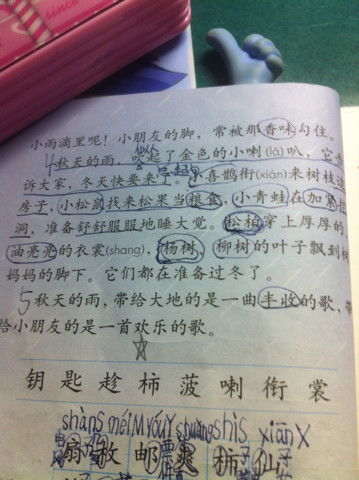 小雨滴里呢！小朋友的脚，常被那香味勾住。
4 秋天的雨，吹起了金色的小喇(lǎ)叭，它告
诉大家，冬天快要来了。小喜鹊衔(xián)来树枝造
房子，小松鼠找来松果当粮食，小青蛙在加紧挖
洞，准备舒舒服服地睡大觉。松柏穿上厚厚的、
油亮亮的衣裳(shang)，杨树、柳树的叶子飘到树
妈妈的脚下。它们都在准备过冬了。
5 秋天的雨，带给大地的是一曲丰收的歌，带
给小朋友的是一首欢乐的歌。
钥匙趁柿菠喇衔裳
shàn méi yóu shuǎng shì xiān
扇枚邮爽柿仙